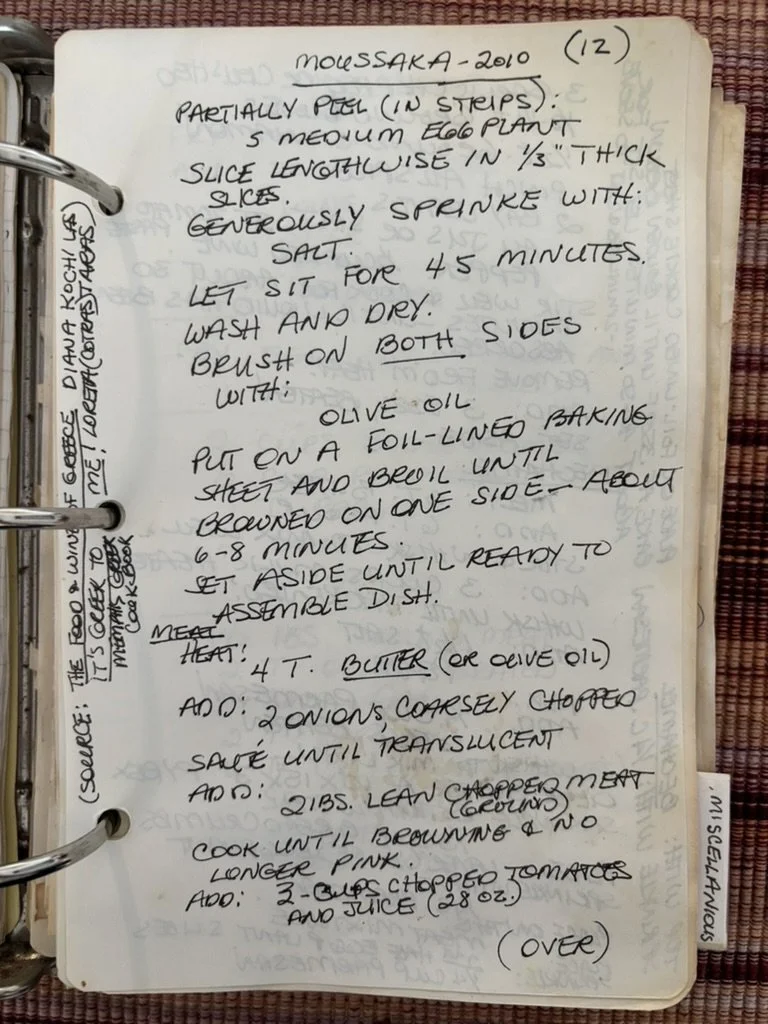 MOUSSAKA - 2010 (12)
PARTIALLY PEEL (IN STRIPS):
5 MEDIUM EGGPLANT
SLICE LENGTHWISE IN 1/3" THICK
SLICES.
GENEROUSLY SPRINKE WITH:
SALT.
LET SIT FOR 45 MINUTES.
WASH AND DRY.
BRUSH ON BOTH SIDES
WITH:
OLIVE OIL
PUT ON A FOIL-LINED BAKING
SHEET AND BROIL UNTIL
BROWNED ON ONE SIDE - ABOUT
6-8 MINUTES.
SET ASIDE UNTIL READY TO
ASSEMBLE DISH.
MEAT
HEAT:
4 T. BUTTER (OR OLIVE OIL)
ADD: 2 ONIONS, COARSELY CHOPPED
SAUTÉ UNTIL TRANSLUCENT
ADD: 2 lBS. LEAN CHOPPED MEAT
(GROUND)
COOK UNTIL BROWNING & NO
LONGER PINK.
ADD: CUPS CHOPPED TOMATOES
AND JUICE (28 OZ.)
(OVER)
(SOURCE: THE FOOD & WINE OF GREECE DIANA KOCHILAS)
IT'S GREEK TO ME! LORETH
MEMPHIS GREEK
COOK-BOOK
MISCELLANIOUS